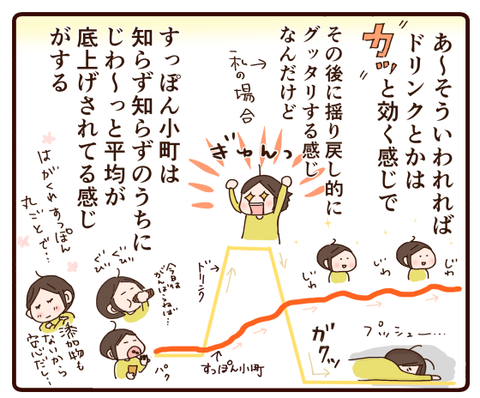 あ〜そういわれれば
ドリンクとかは
カッと効く感じで
その後に揺り戻し的に
グッタリする感じ
なんだけど
私の場合
ぎゅんっ
すっぽん小町は
知らず知らずのうちに
じわ〜っと平均が
底上げされてる感じ
がする
はがくれすっぽん
丸ごとで…
添加物も
ないから
安心だし…
ぐいぐい
今日は
がんばらねば…
パク
ドリンク
すっぽん小町
じわ
じわ
じわ
じわ
ガクッ
プッシュー…